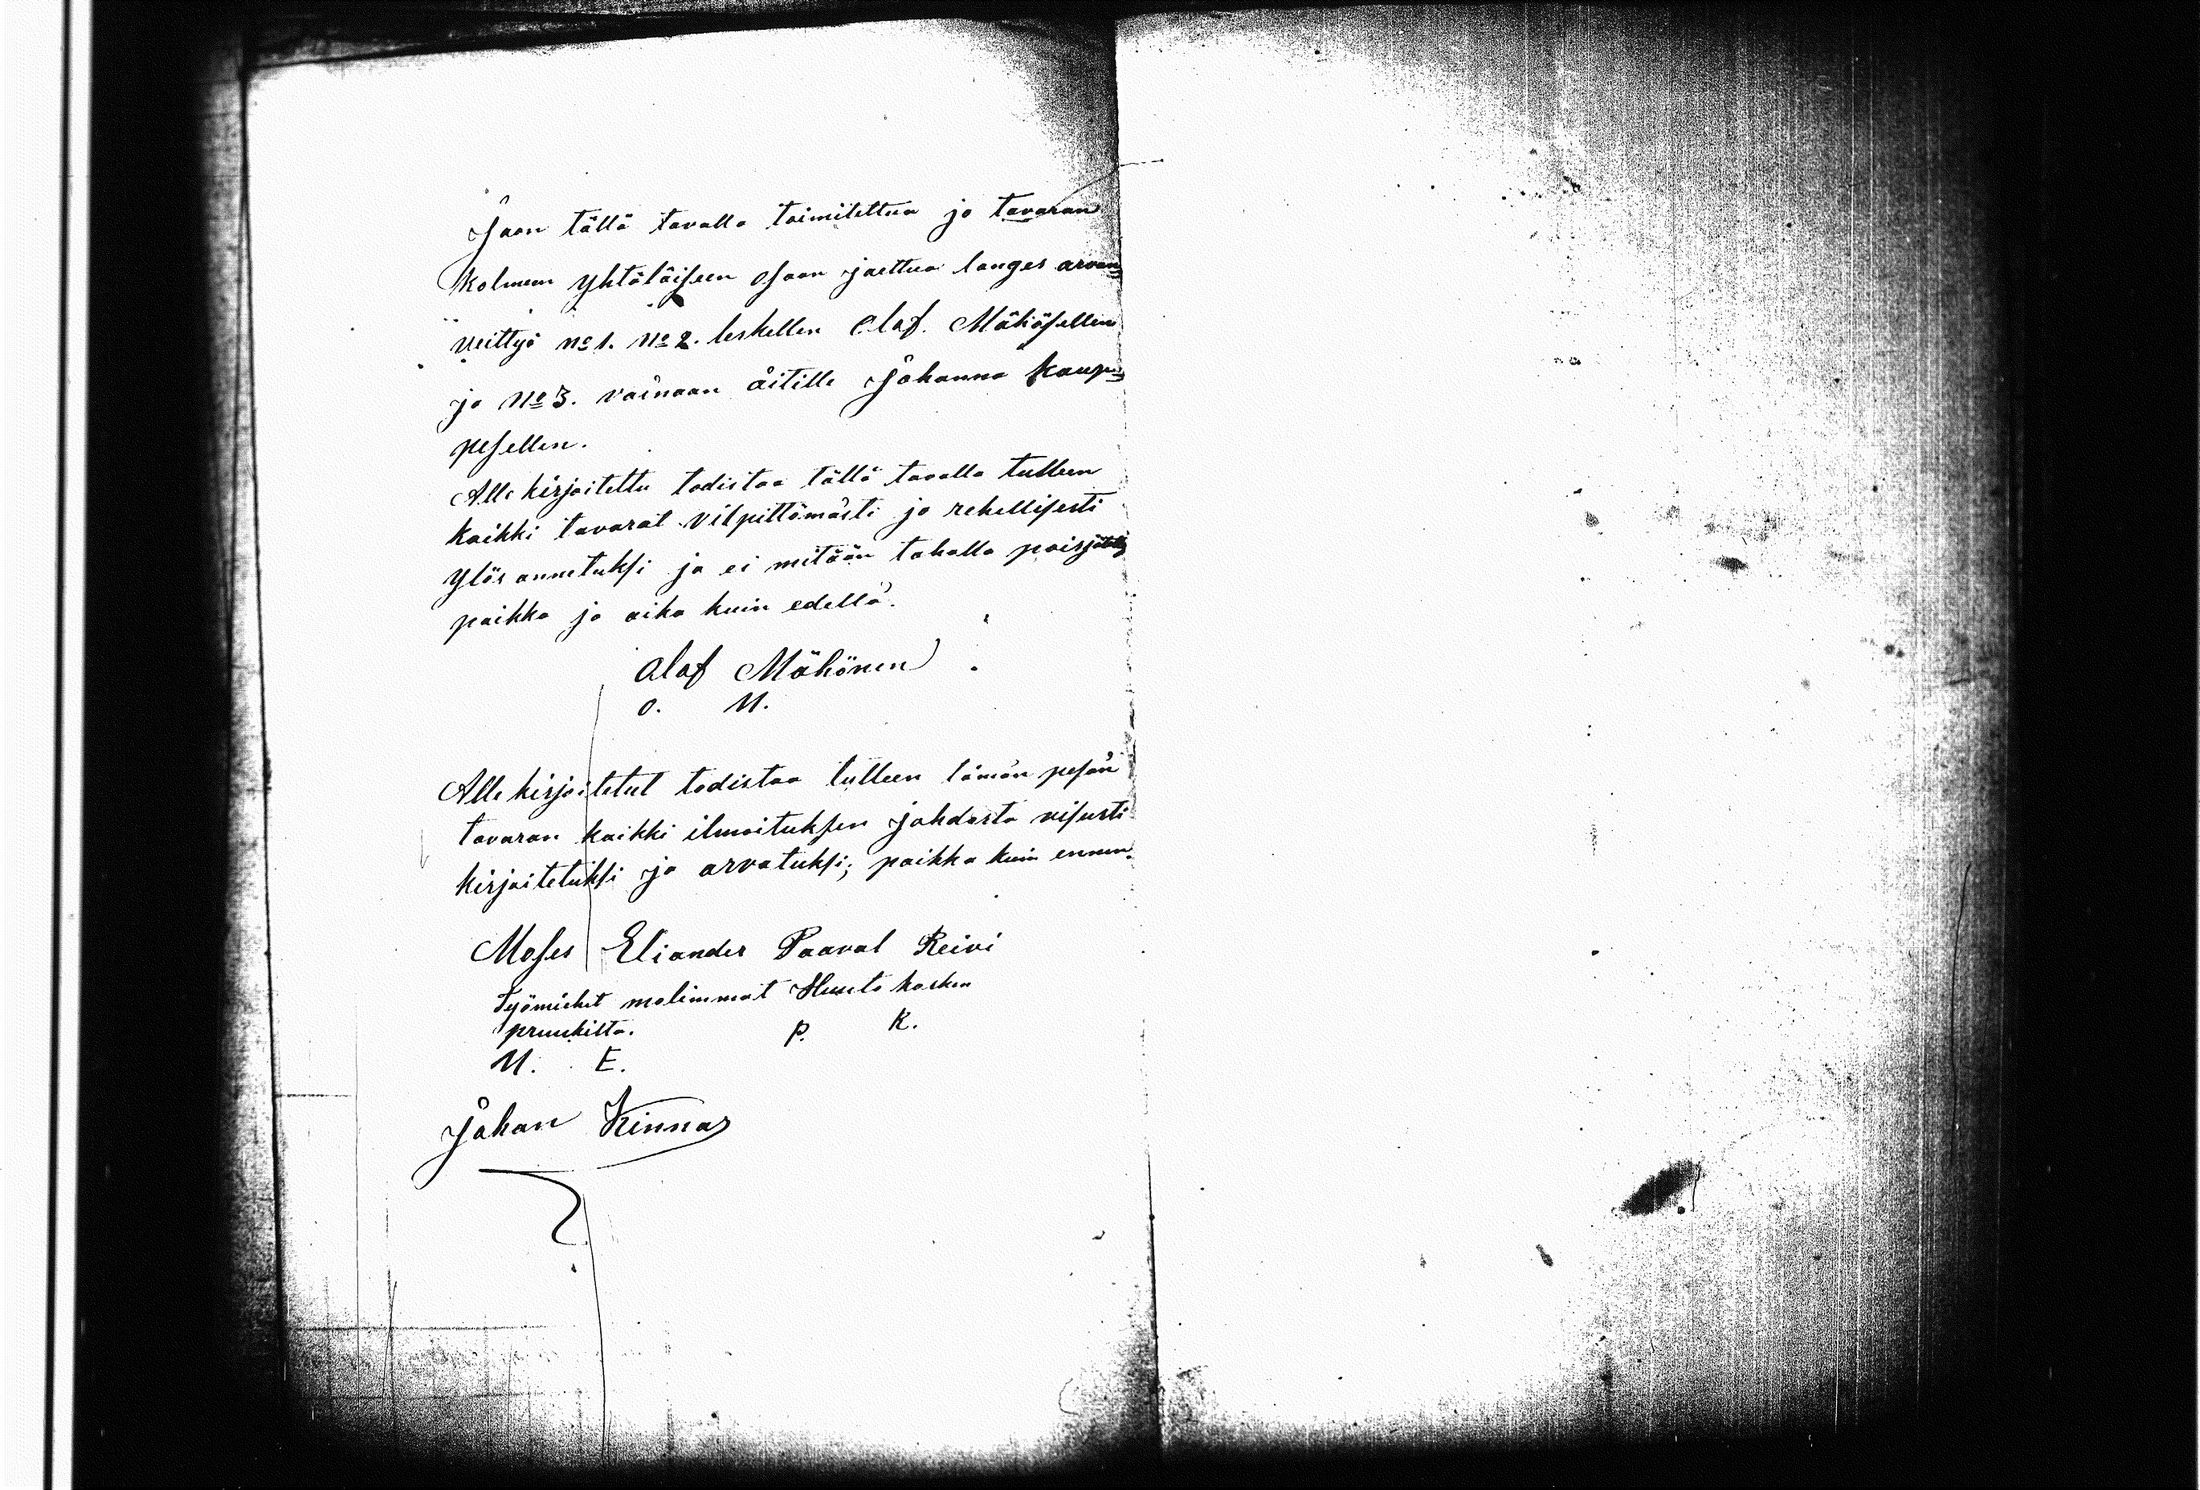 Jaon tällä tavalla toimitettua ja tavaran
kolmeen yhtäläiseen osaan jaettua langes arvan
veittyö No 1. No 2. leskellen Olof. Mähösellen
ja No 3. vainaan äitille Johanna Kaup=
pesellen.
Allekirjoitettu todistaa tällä tavalla tulleen
kaikki tavarat vilpittömästi ja rehellisesti
ylös annetuksi ja ei mitään tahalla
paikka ja aika kuin edellä.
Olof Mähönen
O. M.
Allekirjoitetut todistaa tulleen tämän pesän
tavaran kaikki ilmoituksen johdosta visusti
kirjoitetuksi ja arvatuksi; paikka kuin ennen.
Moses Eliander Paaval Reivi
Työmiehet molimmat kosken
pruukista. P. R.
M. E.
Johan Kinnas